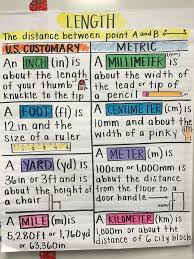 LENGTH
The distance between point A and B
U.S. CUSTOMARY
An INCH (in) is
about the length
of your thumb
knuckle to the tip
A FOOT (ft) is
12 in and the
size of a ruler
A YARD (yd) is
36 in or 3 ft and is
about the height of
a chair
A MILE (m) is
5,280 ft or 1,760 yd
or 63,360 in
METRIC
A MILLIMETER is
about the width of
the lead or tip of
a pencil
A CENTIMETER (cm)
is 10 mm and about the
width of a pinky
A METER (m) is
100cm or 1,000mm is
about the distance
from the floor to a
door handle
A KILOMETER (km) is
1,000m or about the
distance of 6 city block